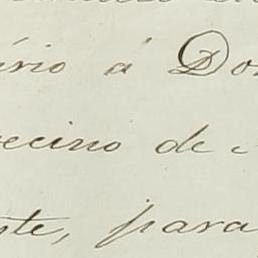 ario á Don
vecino de
ste, para